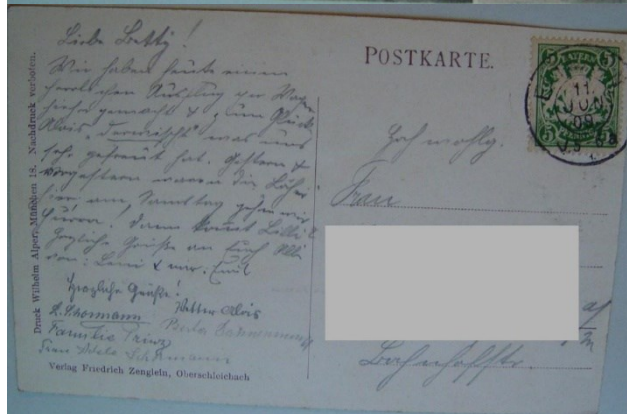 Liebe Betty!
Wir haben heute einen
herrlichen Ausflug per Wagen
hieher gemacht & zum Glück
Alois „derwischt“ was uns
sehr gefreut hat. Gestern &
vorgestern waren die
hier am, Samstag gehen wir
dann kommt Lilli
Herzliche Grüße an Euch Alle
von: Leni & mir. Emil
Herzliche Grüße!
Vetter Alois
Schormann
Familie Prinz
Frau Adele Schormann
Druck Wilhelm Alper, München 18. Nachdruck verboten.
Verlag Friedrich Zenglein, Oberschleichach
POSTKARTE.
5 5
11.
JUN
09
Hochwohlg.
Frau
Bahnhofstr.